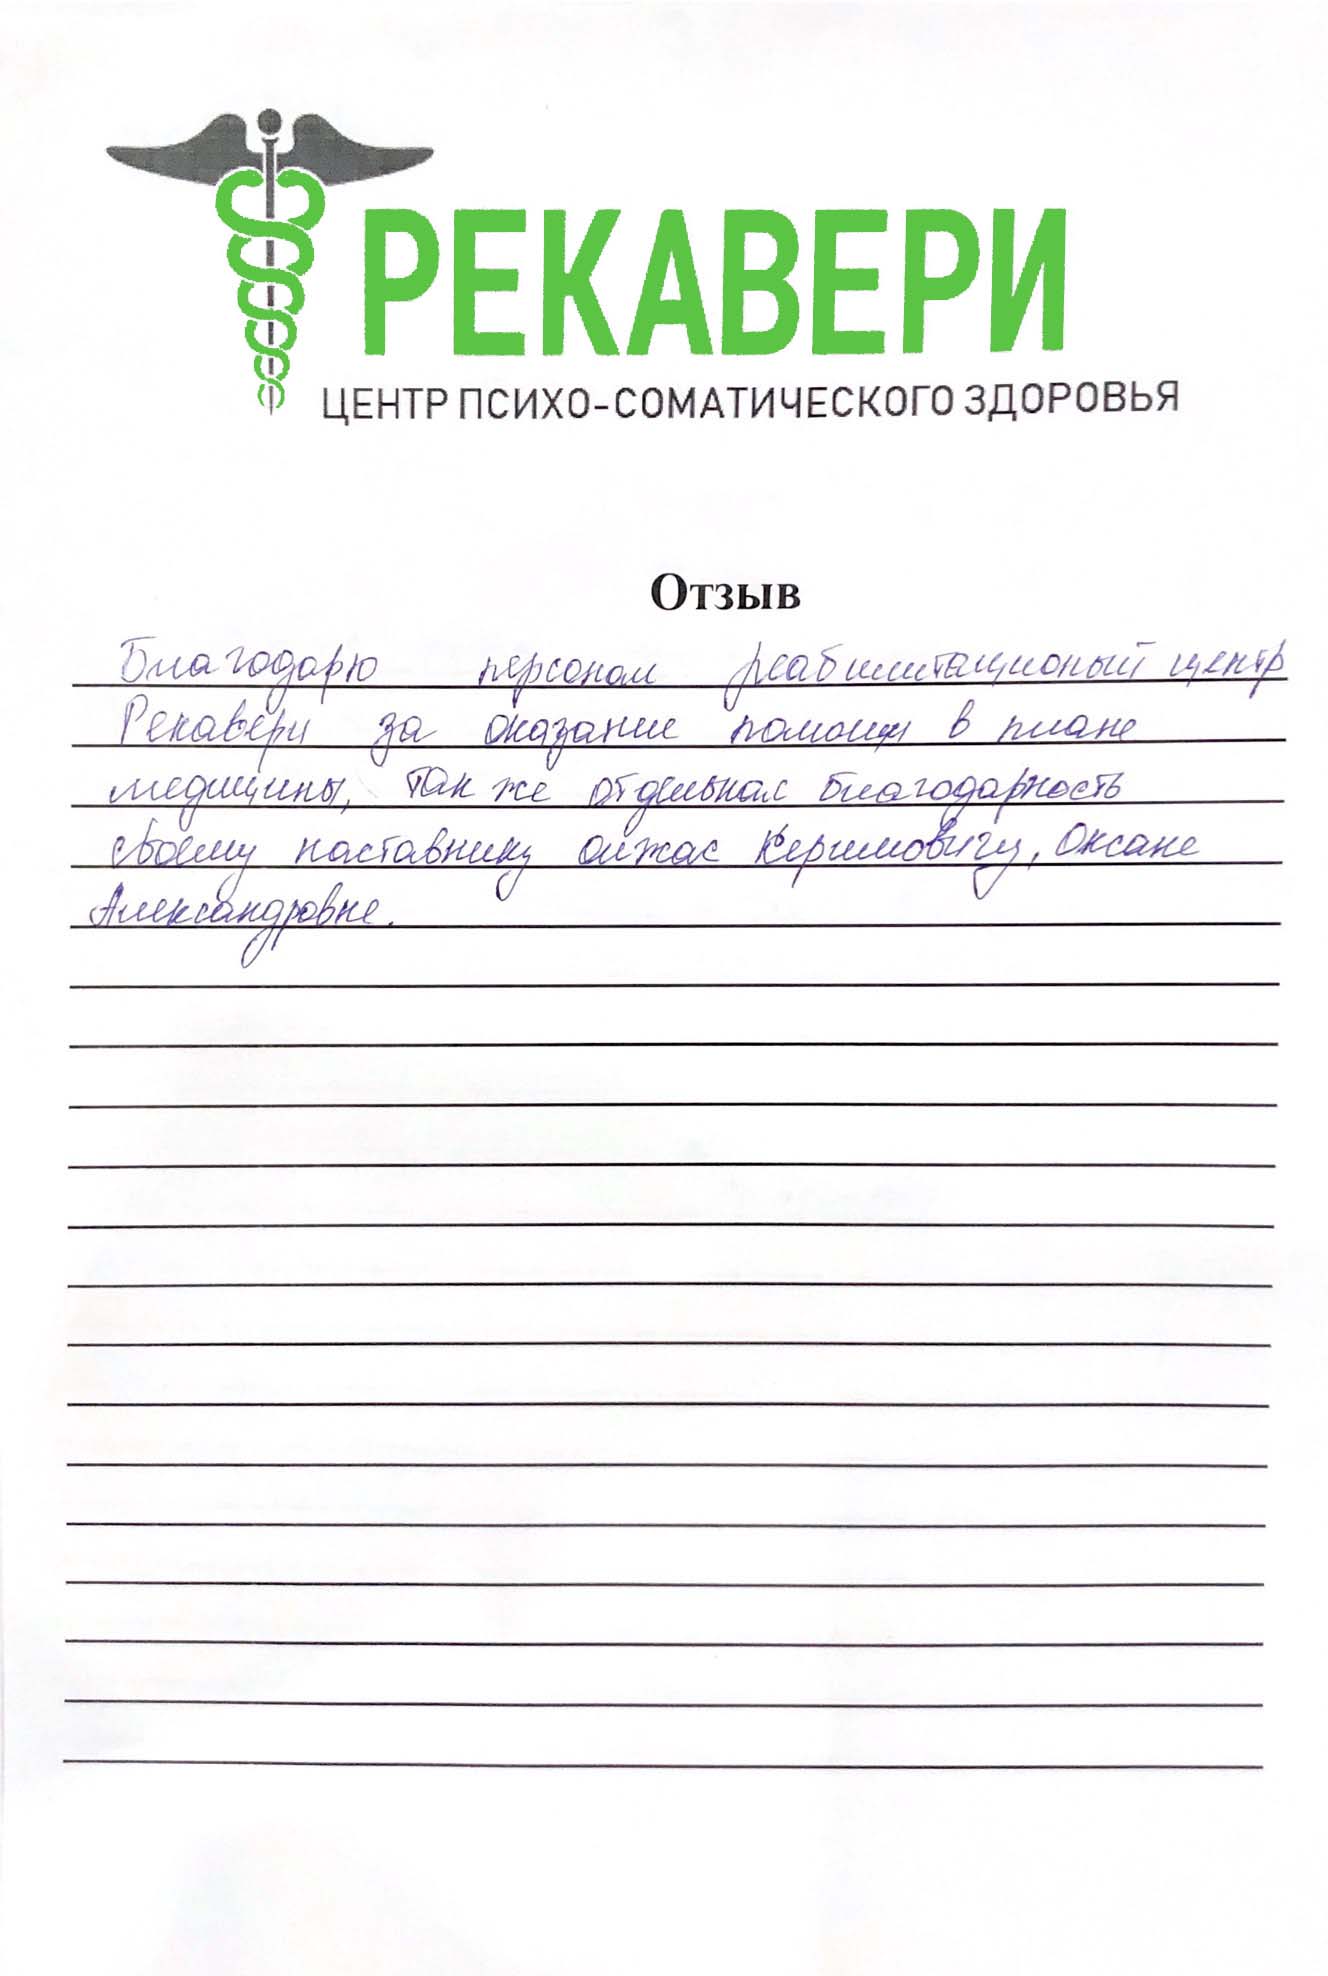 РЕКАВЕРИ
ЦЕНТР ПСИХО-СОМАТИЧЕСКОГО ЗДОРОВЬЯ
Отзыв
Благодарю персонал реабилитационый центр
Рекавери за оказание помощи в плане
медицины, так же отдельная благодарность
своему наставнику Олжас Керимовичу, Оксане
Александровне.